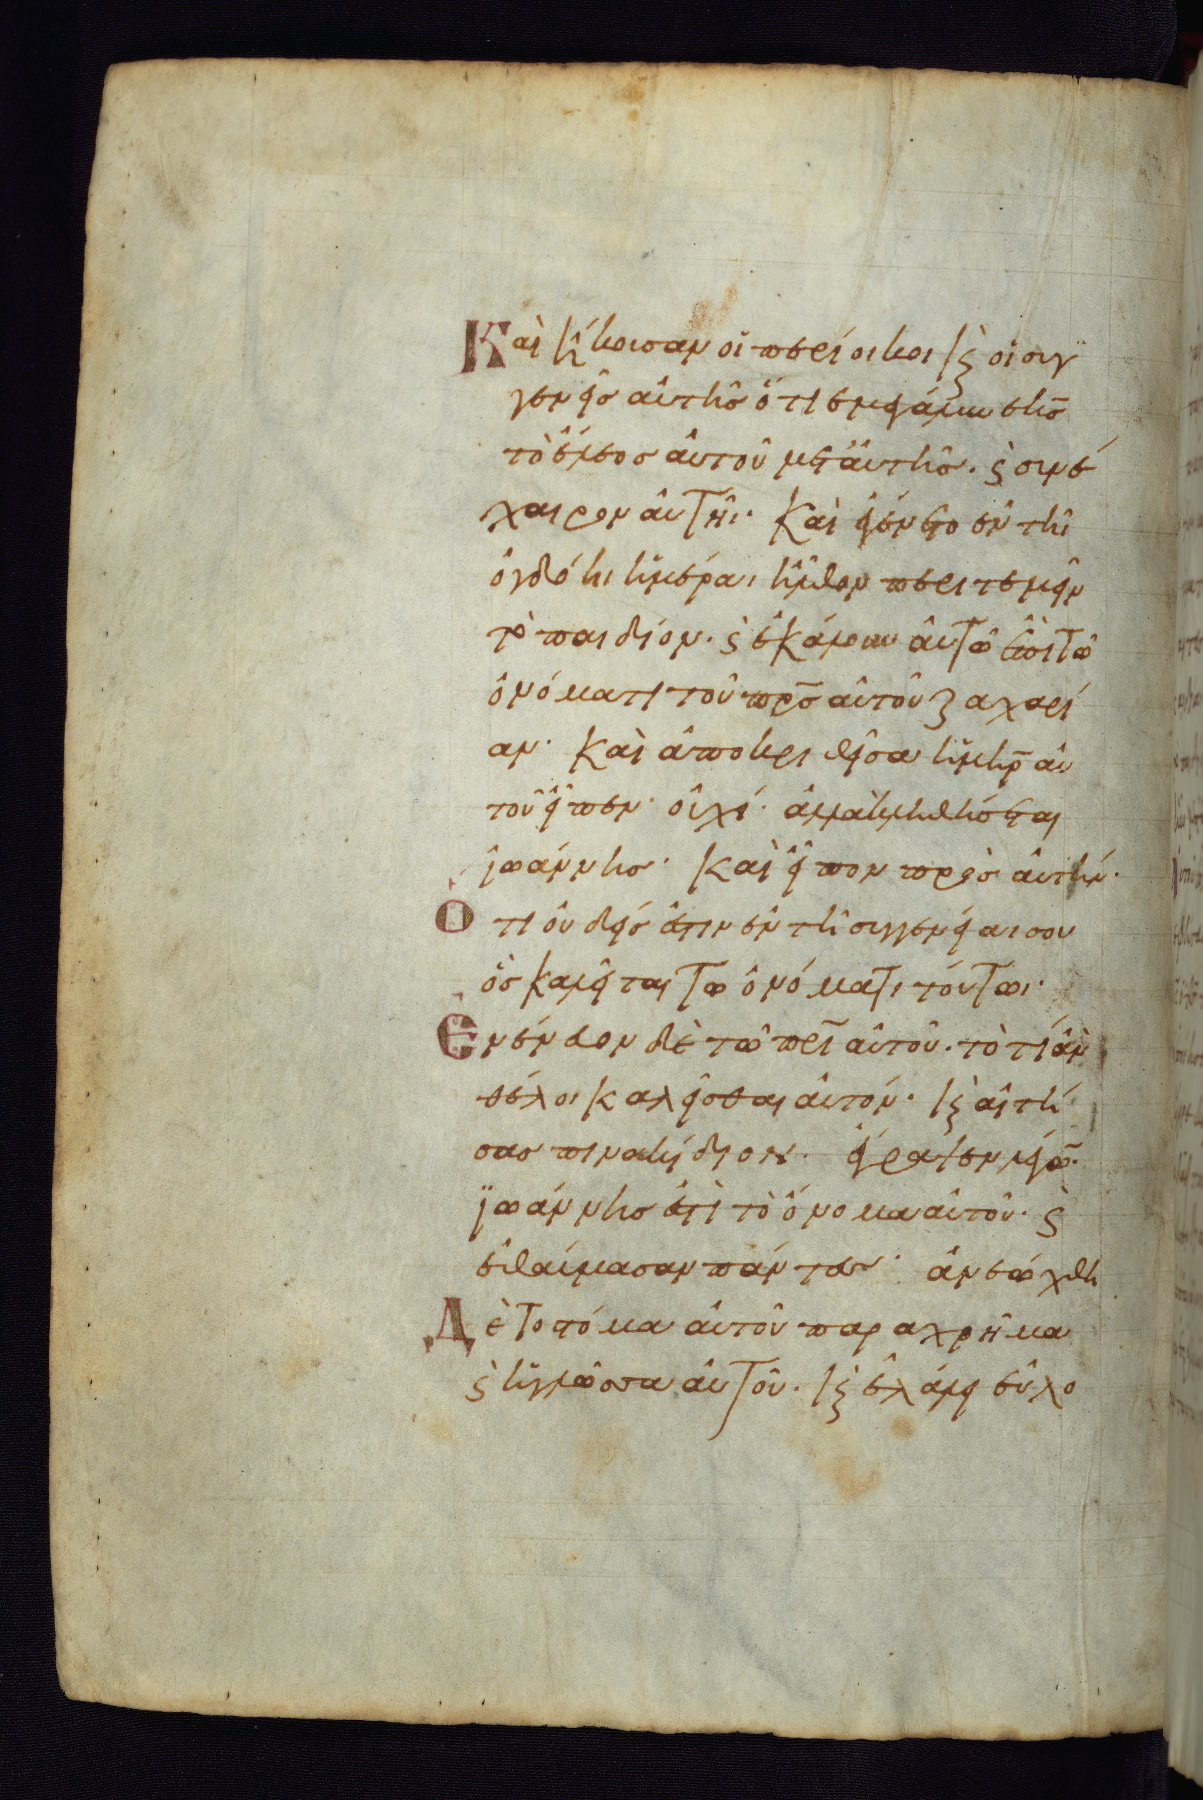 Καὶ ἤκουσαν οἱ περίοικοι καὶ οἱ συγ
γενεῖς αὐτῆς ὅτι ἐμεγάλυνε κ̅ς̅
τὸ ἔλεος αὐτοῦ μετ' αὐτῆς. ϗ συνέ
χαιρον αὐτῆι. Καὶ ἐγένετο ἐν τῆ
ὀγδόηι ἡμέραι ἦλθον περιτεμεῖν
τὸ παιδίον. ϗ ἐκάλουν αὐτὸ ἐπὶ τῶ
ὀνόματι τοῦ π̅ρ̅ς̅ αὐτοῦ ζαχαρί
αν. Καὶ ἀποκριθεῖσα ἡ μ̅η̅ρ̅ αὐ
τοῦ εἶπεν. οὐχί. ἀλλὰ κληθήσεται
ἰωάννης. Καὶ εἶπον πρὸς αὐτήν.
Ὅτι οὐδείς ἐστιν ἐν τῆ συγγενείαι σου
ὃς καλεῖται τῶ ὀνόματι τούτωι.
Ἐνένευον δὲ τῶ π̅ρ̅ι̅ αὐτοῦ. τὸ τί ἂν
θέλοι καλεῖσθαι αὐτόν. καὶ αἰτή
σας πινακίδιον. ἔγραψεν λέγω̅.
ἰωάννης ἐστὶ τὸ ὄνομα αὐτοῦ. ϗ
ἐθαύμασαν πάντες. ἀνεώχθη
Δὲ τὸ στόμα αὐτοῦ παραχρῆμα
ϗ ἡ γλῶσσα αὐτοῦ. καὶ ἐλάλει εὐλο